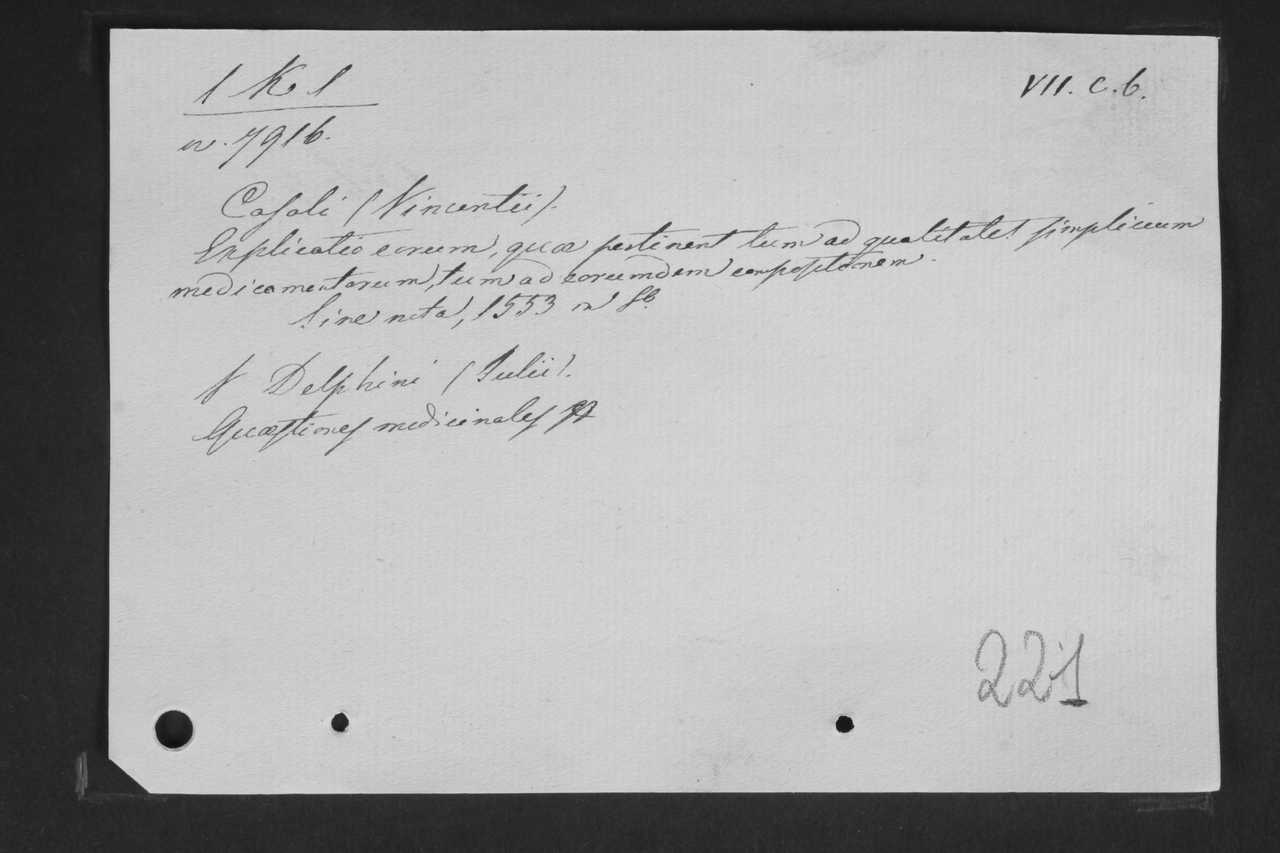 1 K 1
VII. C. 6.
n. 7916.
Casali (Vincentii).
Explicatio eorum, quæ pertinent tum ad qualitates simplicium
medicamentorum, tum ad eorumdem compositionem.
Sine nota, 1553 in 8º.
V Delphini (Julii).
Quæstiones medicinales
221